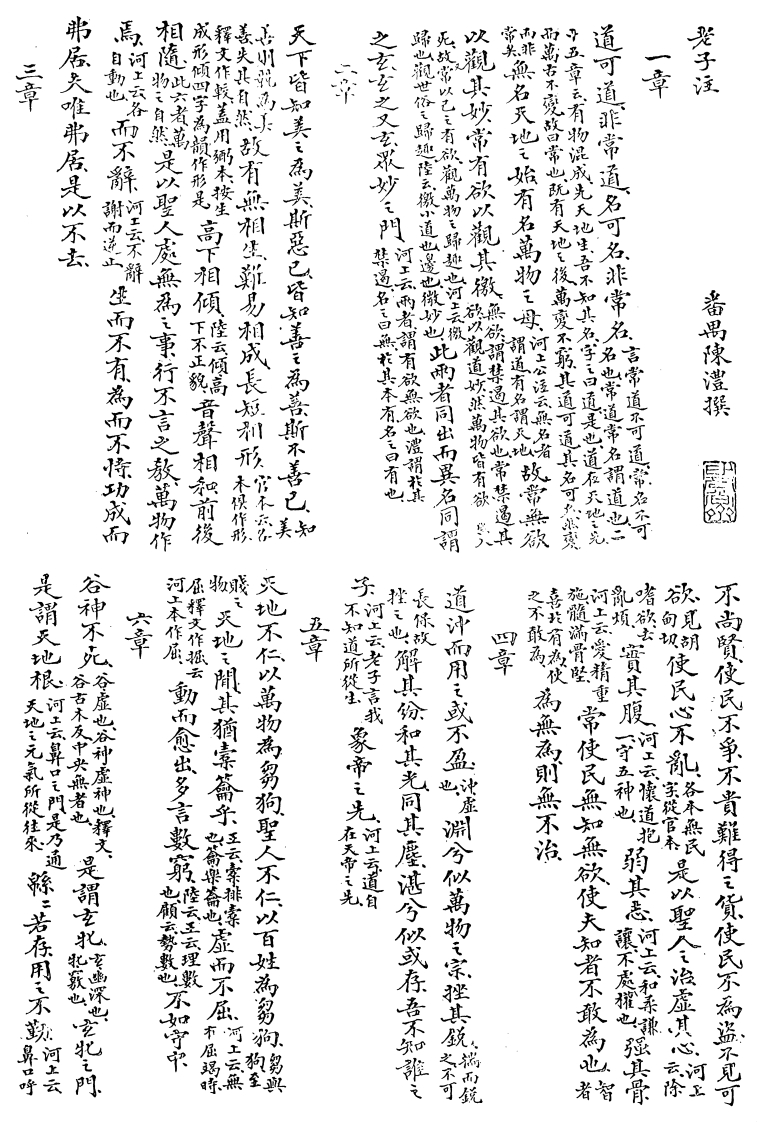 老子注
番禺陳澧撰
一章
道可道、非常道、名可名、非常名、言常道不可道、常名不可名也、常道常名謂道也、二
十五章云有物混成先天地生、吾不知其名、字之曰道、是也、道在天地之先
而萬古不變、故曰常也、既有天地之後、萬變不窮、其道可道、其名可名、非變
而非常矣、無名天地之始、有名萬物之母、河上公注云無名者謂道有名謂天地、故常無欲
以觀其妙、常有欲以觀其徼、無欲謂禁遏其欲也、常禁遏其欲以觀道妙、然萬物皆有欲
死、故常以己之有欲、觀萬物之歸趣也、河上云徼
歸也、觀世俗之歸趣、陸云徼小道也、邊也、微妙也、此兩者同出而異名、同謂
之玄、玄之又玄、眾妙之門、河上云兩者謂有欲無欲也、澧謂於其禁遏名之曰無、於其本有名之曰有也、
二章
天下皆知美之為美、斯惡已、皆知善之為善、斯不善已、美知
善則競為美善失其自然、故有無相生、難易相成、長短相形、官本云各本俱作形
釋文作較、蓋用弼本、按生成形傾四字為韻作形是高下相傾、陸云傾高下不正貌音聲相和、前後
相隨、此六者萬物之自然、是以聖人處無為之事、行不言之教、萬物作
焉、河上云各自動也、而不辭、河上云不辭謝而逆止生而不有、為而不恃、功成而
弗居、夫唯弗居、是以不去、
三章
不尚賢、使民不爭、不貴難得之貨、使民不為盜、不見可
欲、見胡甸切、使民心不亂、各本無民字從官本是以聖人之治、虛其心、河上云除
嗜欲去亂煩、實其腹、河上云懷道抱一守五神也、弱其志、河上云和柔謙讓、不處權也、強其骨
河上云愛精重施髓滿骨堅常使民無知無欲、使夫知者不敢為也、智者
喜於有為、使之不敢為、為無為、則無不治、
四章
道沖而用之或不盈、沖虛也、淵兮似萬物之宗、挫其銳、揣而銳之不可
長保故挫之也、解其紛、和其光、同其塵、湛兮似或存、吾不知誰之
子、河上云老子言我不知道所從生象帝之先、河上云道自在天帝之先、
五章
天地不仁、以萬物為芻狗、聖人不仁、以百姓為芻狗、芻與狗至
賤之物、天地之間、其猶橐籥乎、王云橐排橐也、籥樂籥也、虛而不屈、河上云無有屈竭時、
屈釋文作掘云河上本作屈、動而愈出、多言數窮、陸云王云理數也、顧云勢數也、不如守中、
六章
谷神不死、谷虛也、谷神虛神也、釋文谷古木反中央無者也、是謂玄牝、玄幽深也、牝竅也、玄牝之門、
是謂天地根、河上云鼻口之門、是乃通天地之元氣所從往來、緜緜若存、用之不勤、河上云鼻口呼